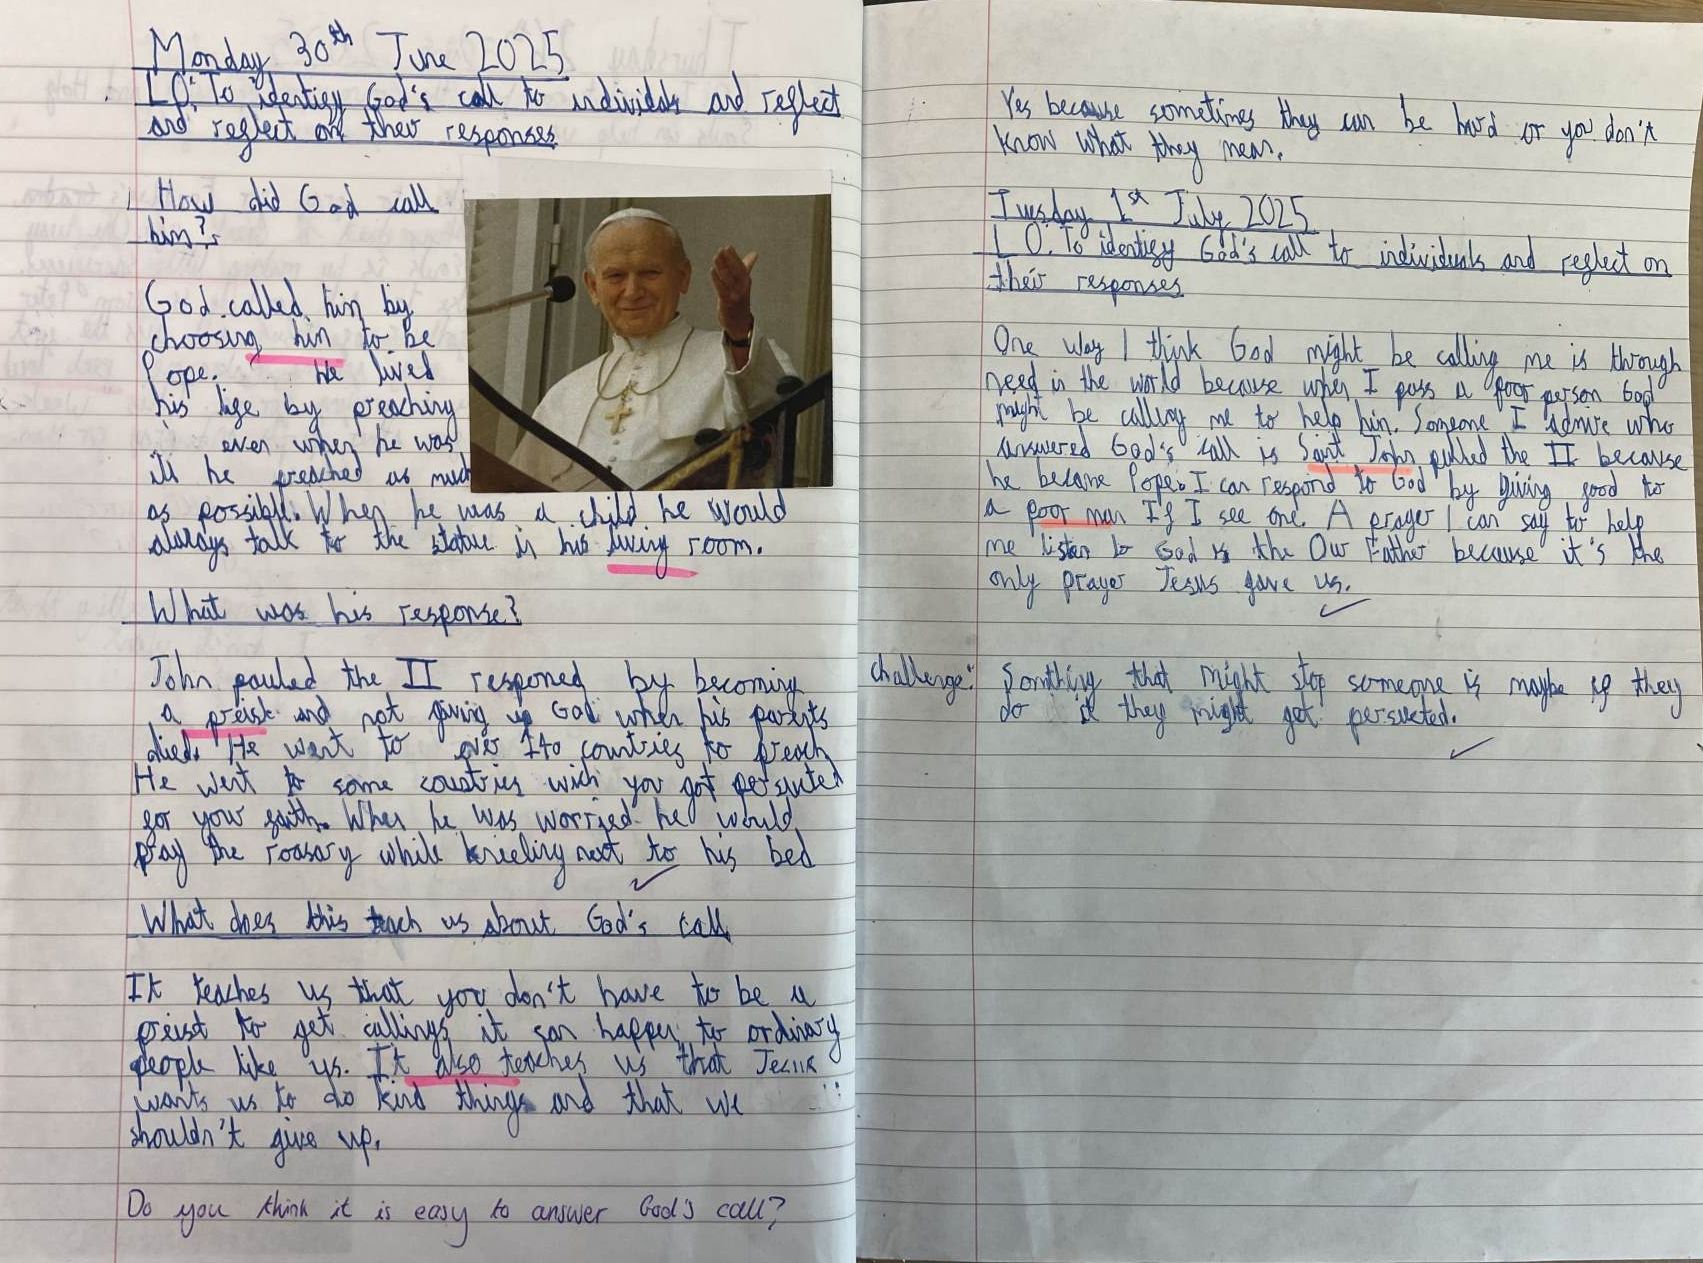 Monday 30th June 2025
LO: To identify God's call to individals and reflect
and reflect on their responses
How did God call
him?
God called him by
choosing him to be
Pope. He lived
his life by preaching
even when he was
ill he preached as much
as possible. When he was a child he would
always talk to the statue in his living room.
What was his response?
John pauled the II responed by becoming
a preist and not giving up God when his parents
died. He went to over 140 countries to preach
He went to some countries wich you got persuted
for your faith. When he was worried he would
pray the roasary while kneeling next to his bed
What does this teach us about God's call
It teaches us that you don't have to be a
preist to get callings it can happen to ordinary
people like us. It also teaches us that Jesus
wants us to do kind things and that we
shouldn't give up.
Do you think it is easy to answer God's call?
Yes because sometimes they can be hard or you don't
know what they mean.
Tuesday 1st July 2025
LO: To identify God's call to individuals and reflect on
their responses
One way I think God might be calling me is through
need in the world because when I pass a poor person God
might be calling me to help him. Someone I admire who
answered God's call is Saint John pulled the II because
he became Pope. I can respond to God by giving food to
a poor man If I see one. A prayer I can say to help
me listen to God is the Our Father because it's the
only prayer Jesus gave us.
challenge: Somthing that might stop someone is maybe if they
do it they might get persucted.